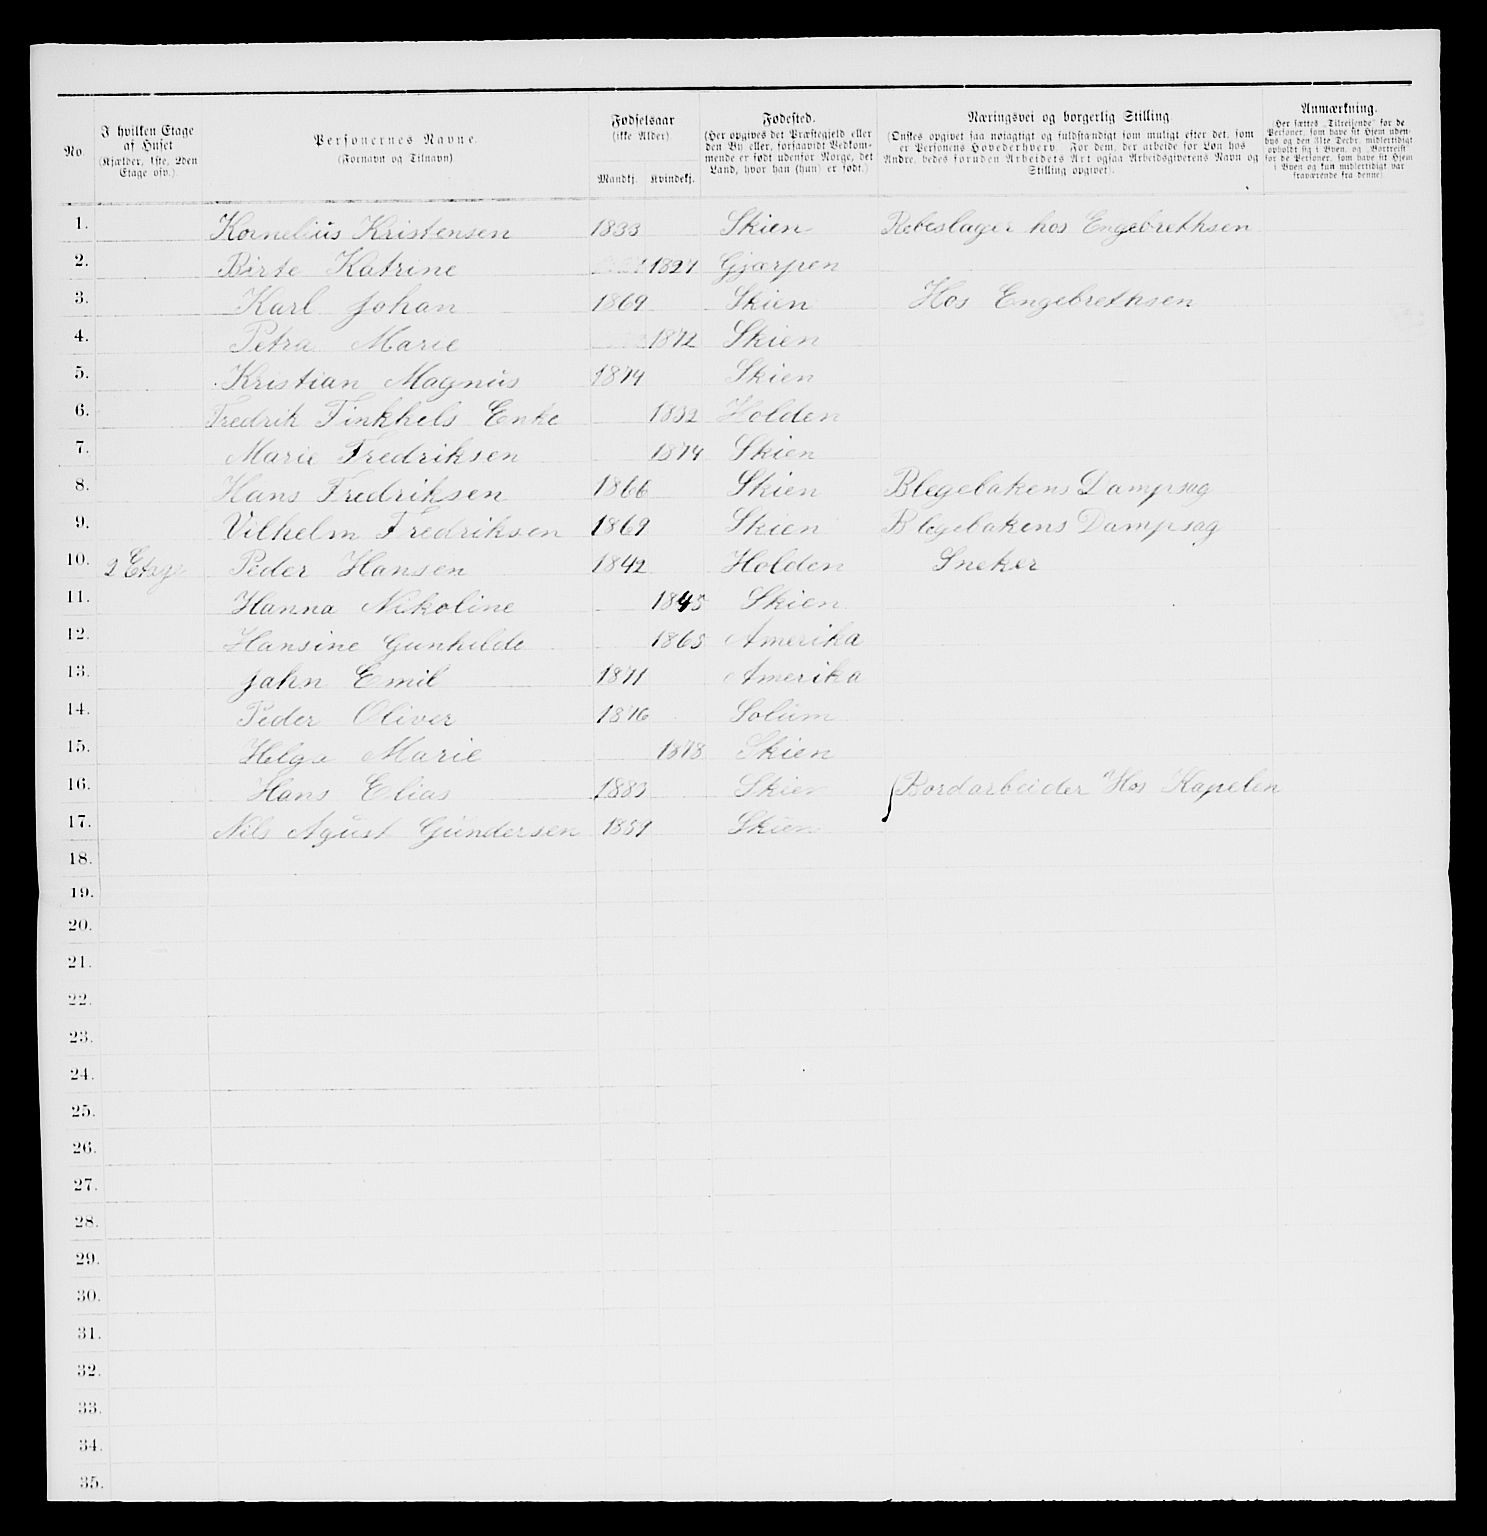 No.
I hvilken Etage af Huset (Kjælder, 1ste, 2den Etage osv.).
Personernes Navne. (Fornavn og Tilnavn)
Fødselsaar (ikke Alder). Mandkj. Kvindekj.
Fødested. (Her opgives det Præstegjeld eller den By eller, forsaavidt Vedkommende er født udenfor Norge, det Land, hvor han (hun) er født.)
Næringsvei og borgerlig Stilling (Ønskes opgivet saa nøiagtigt og fuldstændigt som muligt efter det, som er Personens Hovederhverv. For dem, der arbeide for Løn hos Andre, bedes foruden Arbeidets Art ogsaa Arbeidsgiverens Navn og Stilling opgivet).
Anmærkning. (Her sættes „Tilreisende“ for de Personer, som have sit Hjem udenbys og den 31te Decbr. midlertidigt opholdt sig i Byen, og „Bortreist“ for de Personer, som have sit Hjem i Byen og kun midlertidigt var fraværende fra denne).
1. Kornelius Kristensen 1833 Skien Rebeslager hos Engebrethsen
2. Birte Katrine 1827 Gjærpen
3. Karl Johan 1869 Skien Hos Engebrethsen
4. Petra Marie 1872 Skien
5. Kristian Magnus 1874 Skien
6. Fredrik Finkhels Enke 1832 Holden
7. Marie Fredriksen 1874 Skien
8. Hans Fredriksen 1866 Skien Blegebakens Dampsag
9. Vilhelm Fredriksen 1869 Skien Blegebakens Dampsag
10. 2 Etage Peder Hansen 1842 Holden Sneker
11. Hanna Nikoline 1845 Skien
12. Hansine Gunhilde 1865 Amerika
13. John Emil 1871 Amerika
14. Peder Oliver 1876 Solum
15. Helga Marie 1878 Skien
16. Hans Elias 1883 Skien Bordarbeider Hos Kapelen
17. Nils Agust Gundersen 1859 Skien
18.
19.
20.
21.
22.
23.
24.
25.
26.
27.
28.
29.
30.
31.
32.
33.
34.
35.